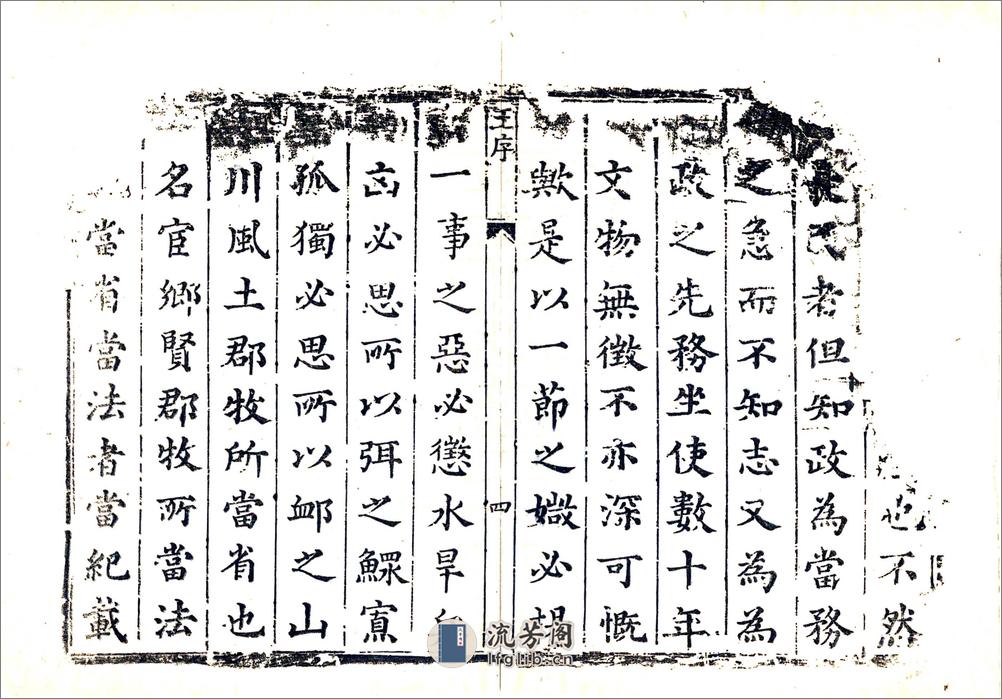 也不然
長民者但知政為當務
之急而不知志又為為
政之先務坐使數十年
文物無徵不亦深可慨
歟是以一節之媺必
王序
四
一事之惡必懲水旱
凶必思所以弭之鰥寡
孤獨必思所以䘏之山
川風土郡牧所當省也
名宦鄉賢郡牧所當法
當省當法者當紀載
流芳阁
lfglib.cn